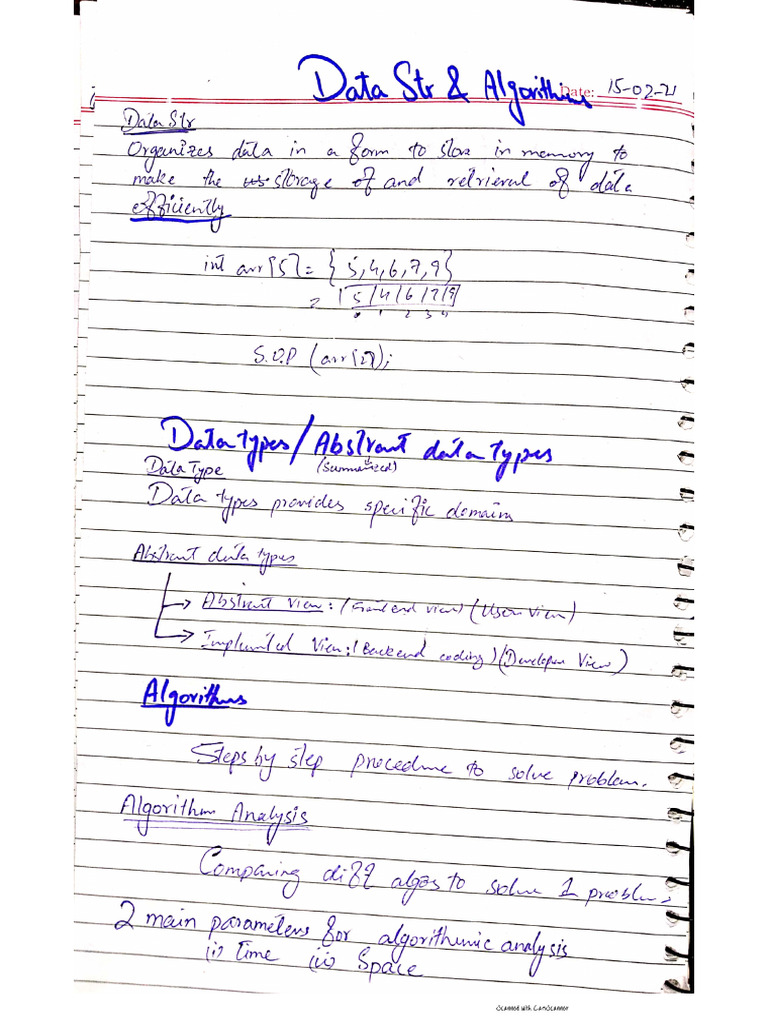 Data Str & Algorithms
Date: 15-02-21
Data Str
Organizes data in a form to store in memory to
make the storage of and retrieval of data
efficiently
int arr[5] = { 5,4,6,7,9}
= |5|4|6|7|9|
0 1 2 3 4
S.O.P (arr[2]);
Data types/Abstract data types
(Summarized)
Data Type
Data types provides specific domains
Abstract data types
→ Abstract View: (Frontend view) (User View)
→ Implemited View: (Backend coding) (Developer View)
Algorithms
Steps by step procedure to solve problem.
Algorithm Analysis
Comparing diff algos to solve 1 problem.
2 main parameters for algorithmic analysis
(i) Time (ii) Space
Scanned with CamScanner